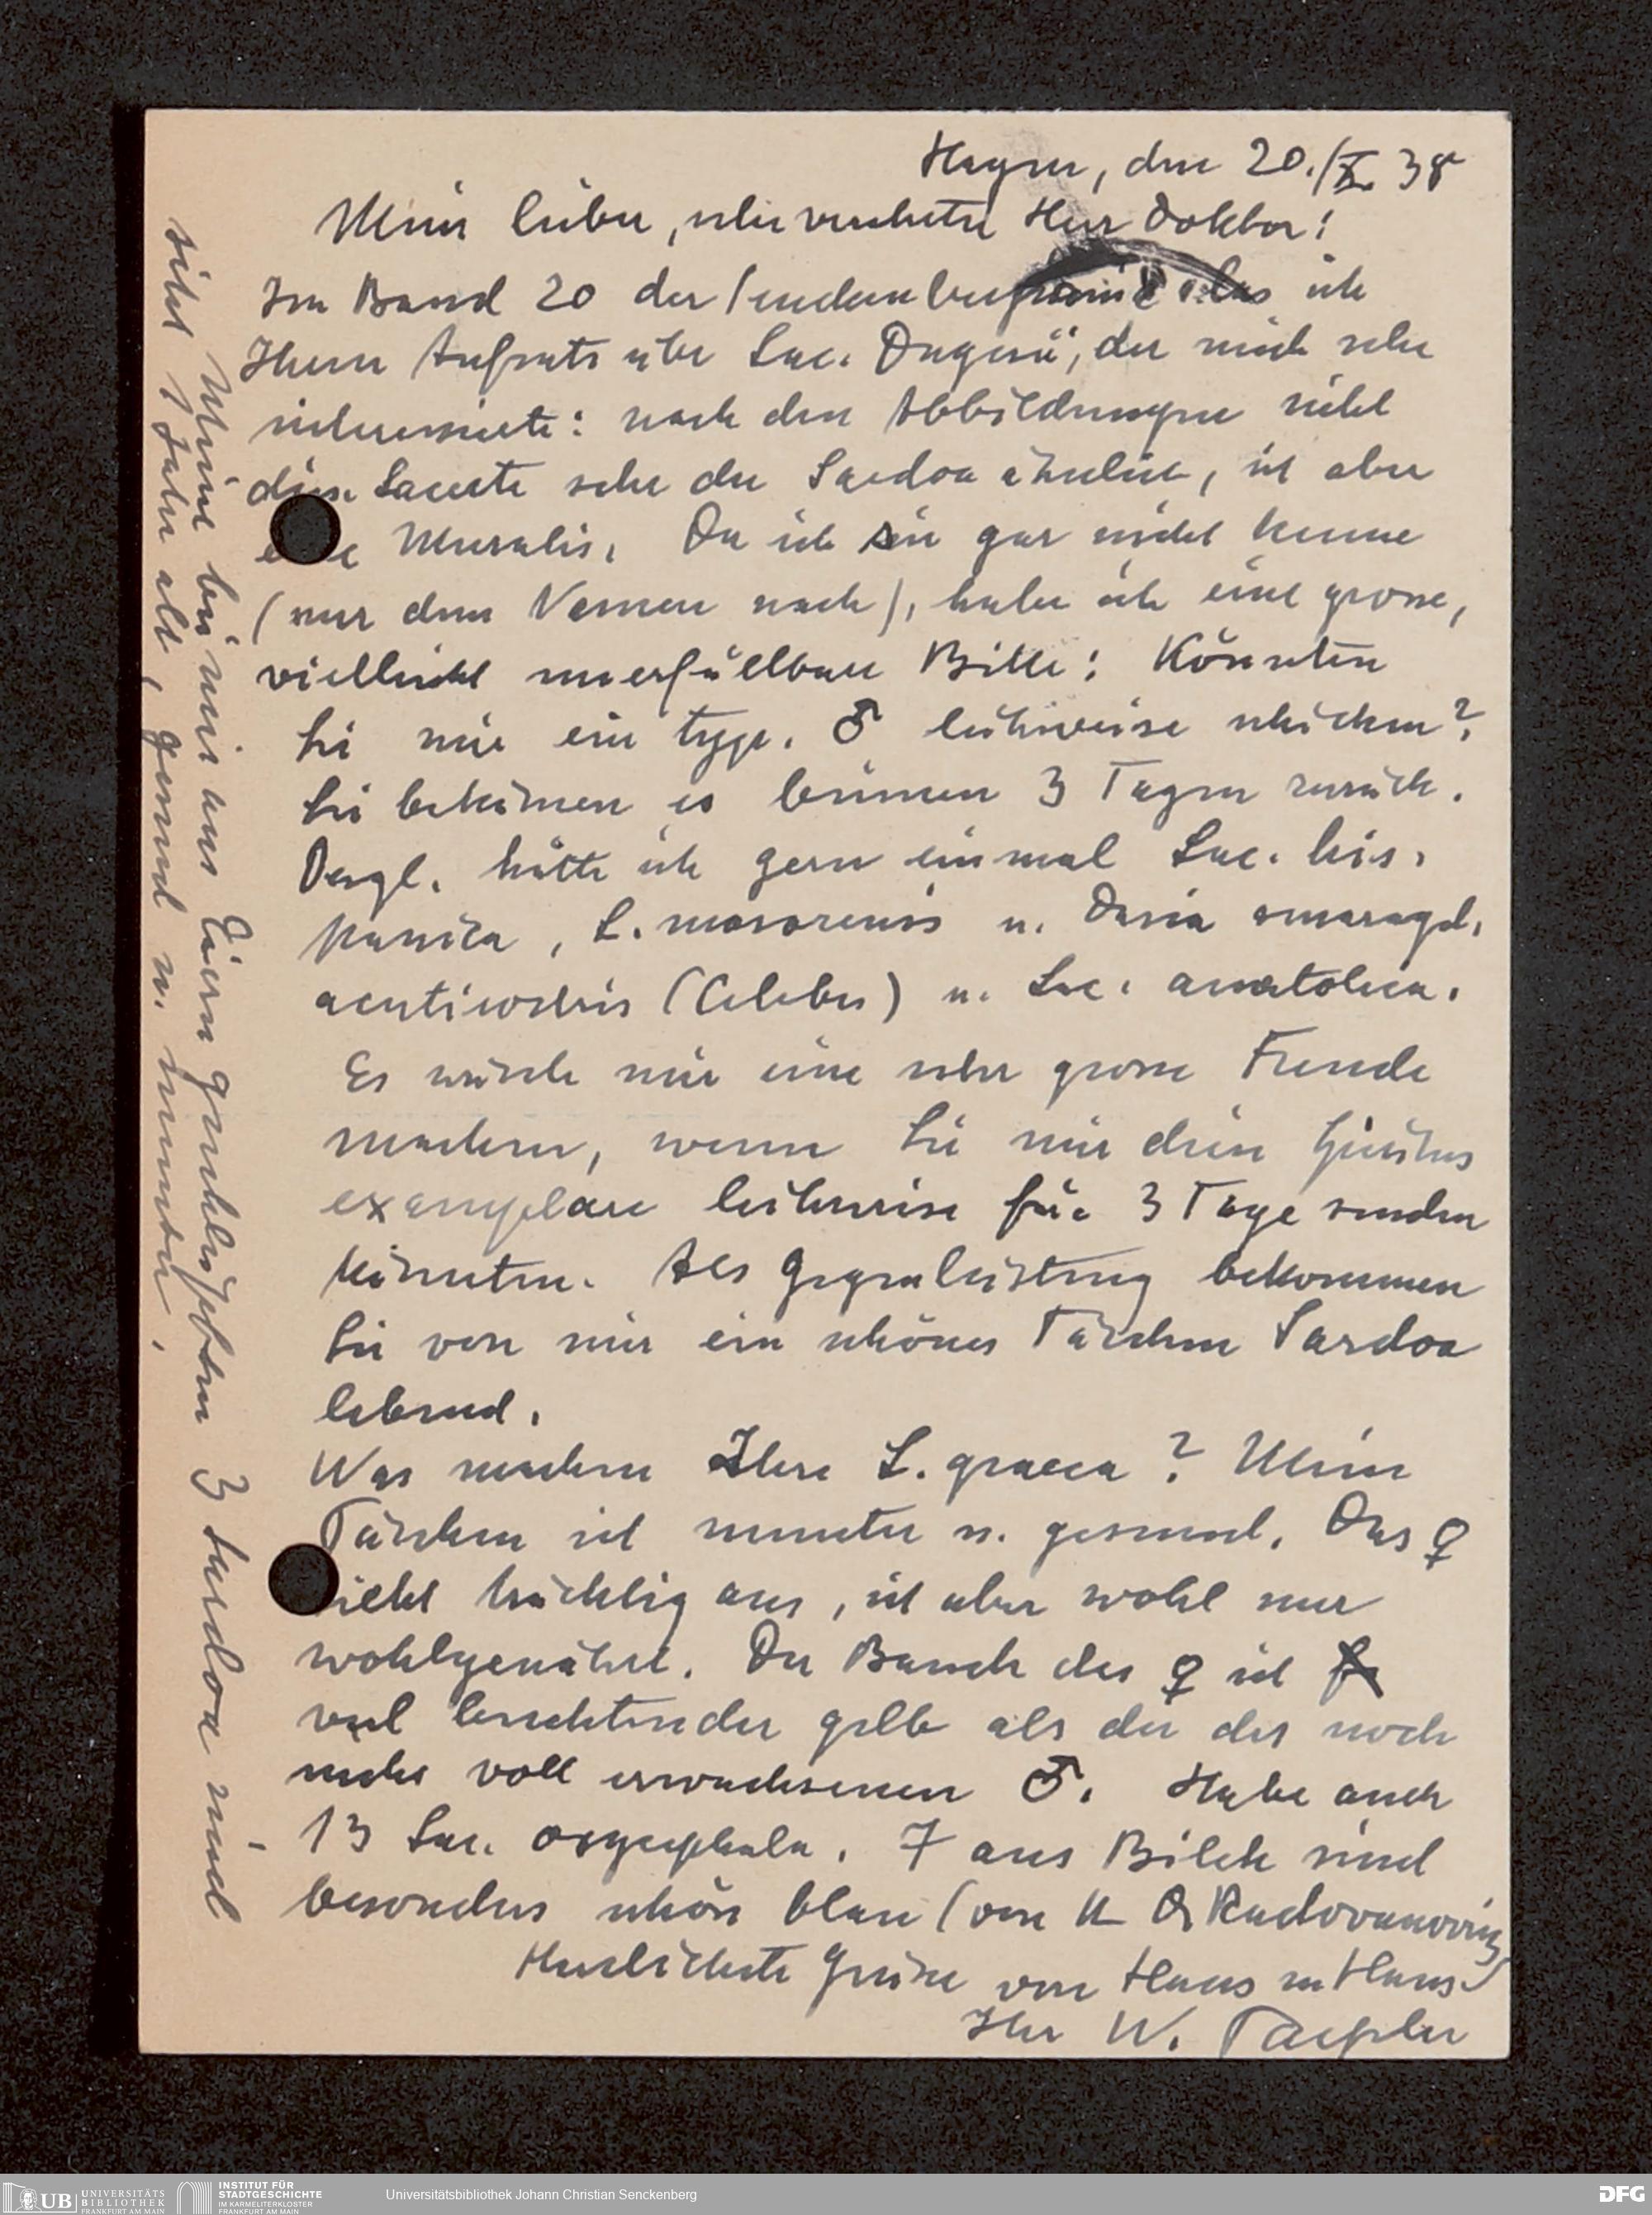 Hagen, den 20./X. 38
Mein lieber, sehr verehrter Herr Doktor!
Im Band 20 der Senckenbergiana las ich
Ihren Aufsatz über Lac. Dugesii, der mich sehr
interessierte: nach den Abbildungen sieht
diese Lacerte sehr der Sardoa ähnlich, ist aber
eine Muralis. Da ich sie gar nicht kenne
(nur dem Namen nach), habe ich eine grosse,
vielleicht unerfüllbare Bitte: Könnten
Sie mir ein typ. ♂ leihweise schicken?
Sie bekämen es binnen 3 Tagen zurück.
Desgl. hätte ich gern einmal Lac. his-
panica, L. mosorensis u. Dasia smaragd.
acutirostris (Celebes) u. Lac. anatolica.
Es würde mir eine sehr grosse Freude
machen, wenn Sie mir diese Spiritus
exemplare leihweise für 3 Tage senden
könnten. Als Gegenleistung bekommen
Sie von mir ein schönes Pärchen Sardoa
lebend.
Was machen Ihre L. graeca? Mein
Pärchen ist munter u. gesund. Das ♀
sieht trächtig aus, ist aber wohl nur
wohlgenährt. Der Bauch des ♀ ist
viel leuchtender gelb als der des noch
nicht voll erwachsenen ♂. Habe auch
13 Lac. oxycephala. 7 aus Bilek sind
besonders schön blau (von Dr Radovanovic)
Herzlichste Grüsse von Haus zu Haus
Ihr W. Taepler
Meine bei mir aus Eiern geschlüpften 3 Sardoa sind
jetzt 1 Jahr alt, gesund u. munter.
UB UNIVERSITÄTS
BIBLIOTHEK
FRANKFURT AM MAIN
INSTITUT FÜR
STADTGESCHICHTE
IM KARMELITERKLOSTER
FRANKFURT AM MAIN
Universitätsbibliothek Johann Christian Senckenberg
DFG